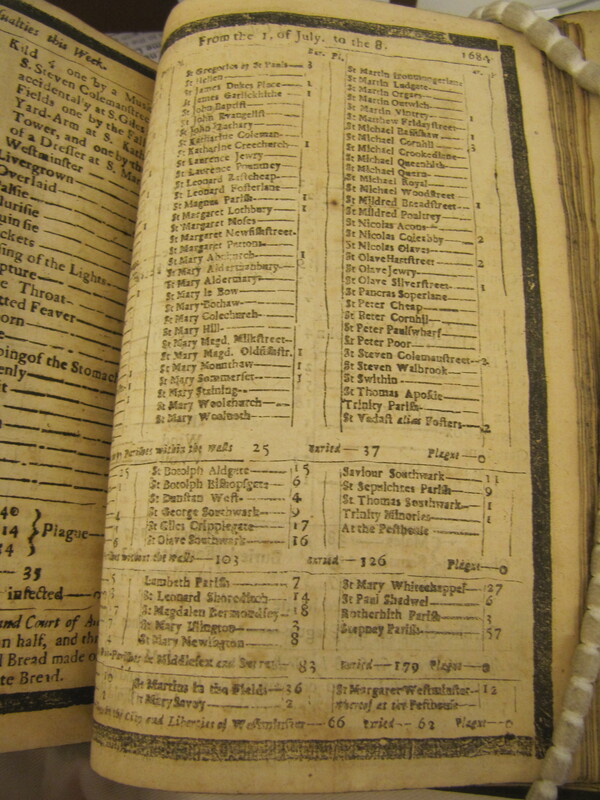 sualties this Week.
Kild 4 one by a
S. Steven Colemanstreet
accidentally at S. Giles
Fields one by the Fall
Yard-Arm at S. Kat
Tower, and one by the
of a Dresser at S. Mar
Westminster
Livergrown
Overlaid
Palsie
lurisie
uinsie
ckets
ing of the Lights
pture
e Throat
tted Feaver
orn
ping of the Stomach
enly
14 } Plague
35
infected
and Court of
n half, and the
l Bread made o
te Bread.
From the 1, of July. to the 8. 1684
St Gregories by St Pauls 3
St Hellen
St James Dukes Place 1
St James Garlickhithe 1
St John Baptist
St John Evangelist
St John Zachary
St Katharine Coleman
St Katharine Creechurch 1
St Laurence Jewry
St Laurence Pountney
St Leonard Eastcheap
St Leonard Fosterlane
St Magnus Parish 1
St Margaret Lothbury 1
St Margaret Moses
St Margaret Newfishstreet
St Margaret Pattons
St Mary Abchurch 1
St Mary Aldermanbury
St Mary Aldermary
St Mary le Bow
St Mary Bothaw
St Mary Colechurch
St Mary Hill
St Mary Magd. Milkstreet
St Mary Magd. Oldfishstr. 1
St Mary Mounthaw 1
St Mary Sommerset 1
St Mary Staining
St Mary Woolchurch
St Mary Woolnoth
St Martin Ironmongerlane
St Martin Ludgate
St Martin Orgars
St Martin Outwich
St Martin Vintrey 1
St Matthew Fridaystreet
St Michael Bassishaw 1
St Michael Cornhil 3
St Michael Crookedlane
St Michael Queenhith
St Michael Quern
St Michael Royal
St Michael Woodstreet
St Mildred Breadstreet 1
St Mildred Poultrey
St Nicolas Acons
St Nicolas Coleabby 2
St Nicolas Olaves
St Olave Hartstreet 2
St Olave Jewry
St Olave Silverstreet 1
St Pancras Soperlane
St Peter Cheap
St Peter Cornhil
St Peter Paulswharf
St Peter Poor
St Steven Colemanstreet 2
St Steven Walbrook
St Swithin
St Thomas Apostle
Trinity Parish
St Vedast alias Fosters 2
Parishes within the walls 25 Buried 37 Plague 0
St Botolph Aldgate 15
St Botolph Bishopsgate 6
St Dunstan West 4
St George Southwark 9
St Giles Cripplegate 17
St Olave Southwark 16
Saviour Southwark 11
St Sepulchres Parish 9
St Thomas Southwark 1
Trinity Minories 1
At the Pesthouse
without the walls 103 Buried 126 Plague 0
Lambeth Parish 7
St Leonard Shoreditch 14
St Magdalen Bermondsey 18
St Mary Islington 3
St Mary Newington 8
St Mary Whitechappel 27
St Paul Shadwel 6
Rotherhith Parish 3
Stepney Parish 57
Parishes in Middlesex and Surrey 83 Buried 179 Plague 0
St Martins in the Fields 36
St Mary Savoy 2
St Margaret Westminster 12
whereof at the Pesthouse
in the City and Liberties of Westminster 66 Buried 62 Plague 0